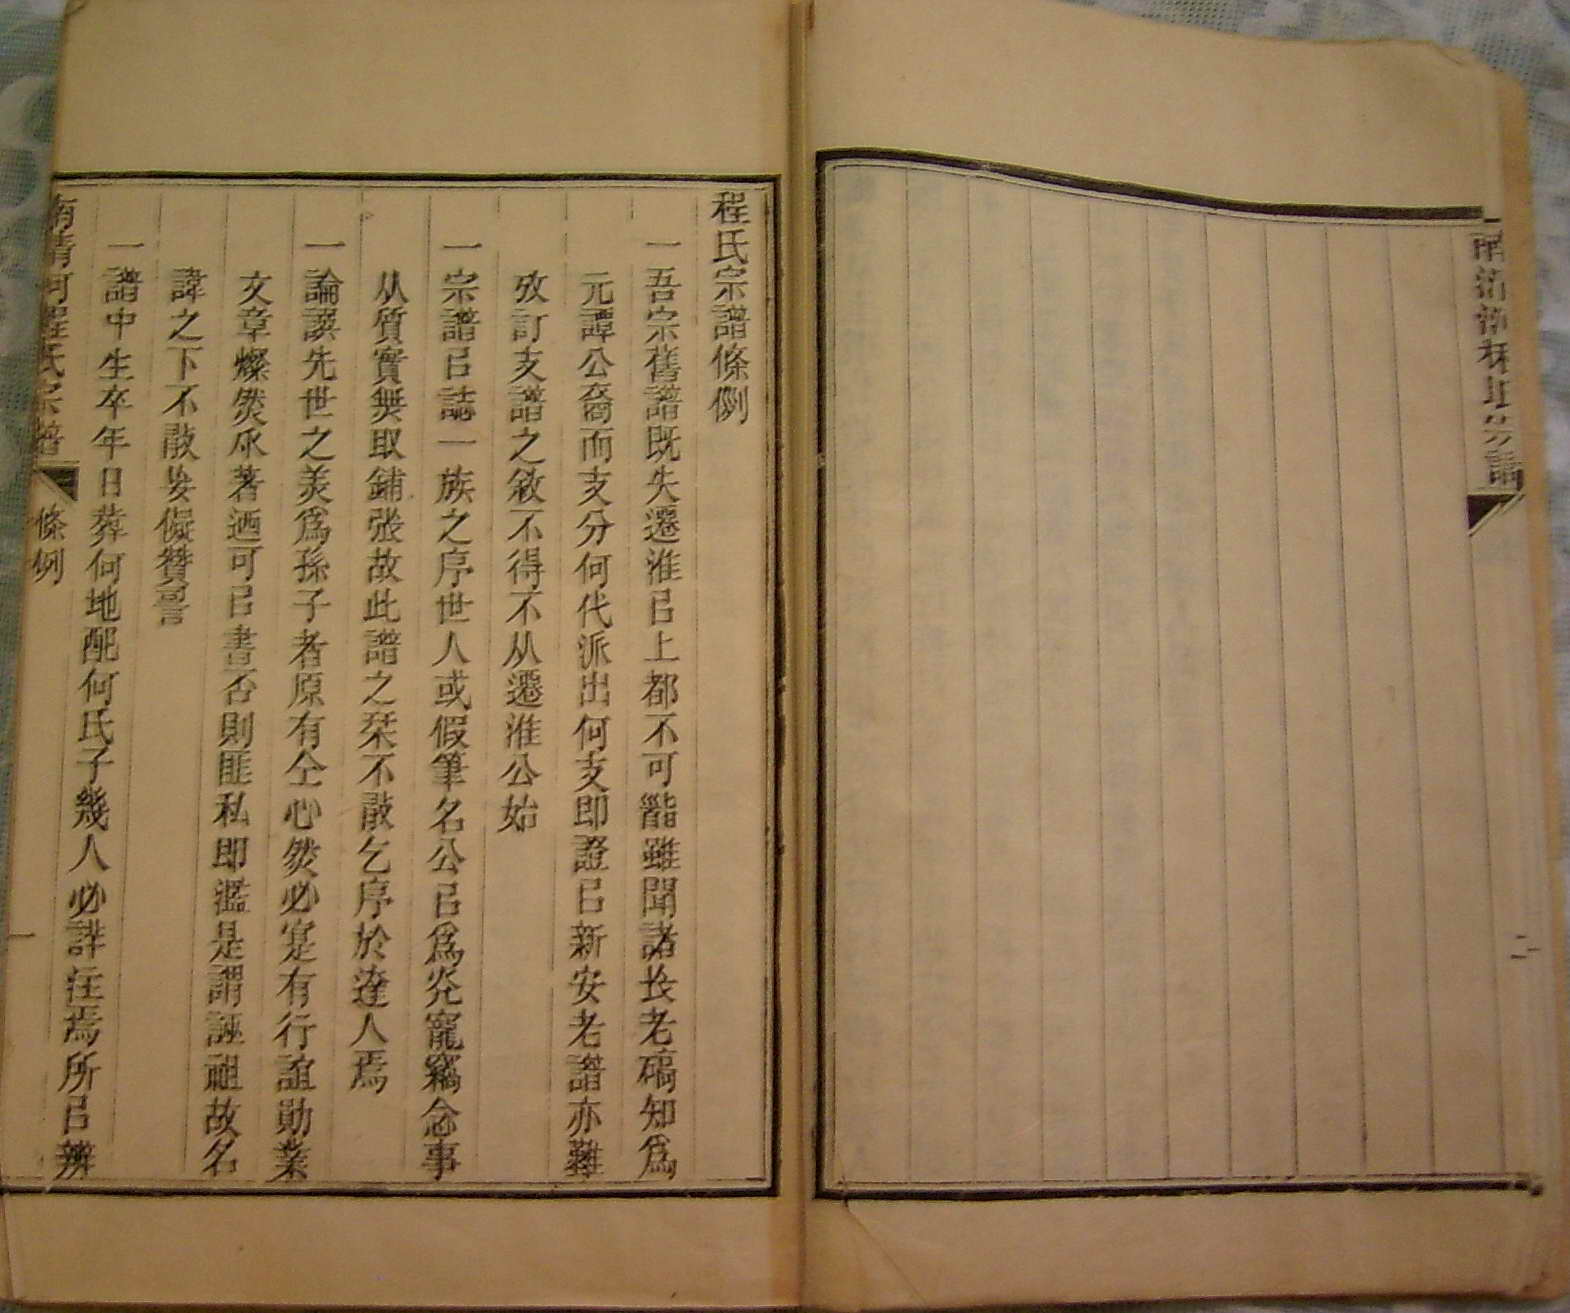 程氏宗譜條例
一吾宗舊譜既失遷淮㠯上都不可諧雖聞諸長老碻知爲
元譚公裔而支分何代派出何支即證㠯新安老譜亦難
攷訂支譜之敘不得不从遷淮公始
一宗譜㠯誌一族之序世人或假筆名公㠯爲光寵竊念事
从質實無取鋪張故此譜之栞不敢乞序於達人焉
一論譔先世之美爲孫子者原有仝心然必寔有行誼勛業
文章燦然承著迺可㠯書否則匪私即濫是謂誣祖故名
諱之下不敢妄儗贊言
一譜中生卒年日葬何地配何氏子幾人必詳注焉所㠯辨
南清河程氏宗譜
條例
一
二